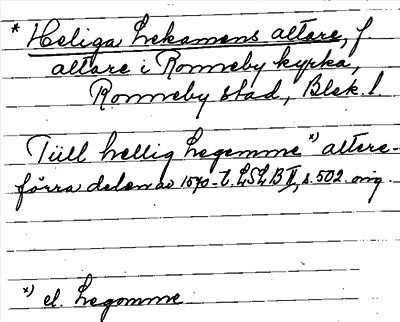 * Heliga Lekamens altare, f.
altare i Ronneby kyrka,
Ronneby stad, Blek. l.
Tüll hellig Legemme *) altere
förra delen av 1570-t. LSLB II, s. 502. orig.
*) el. Legomme